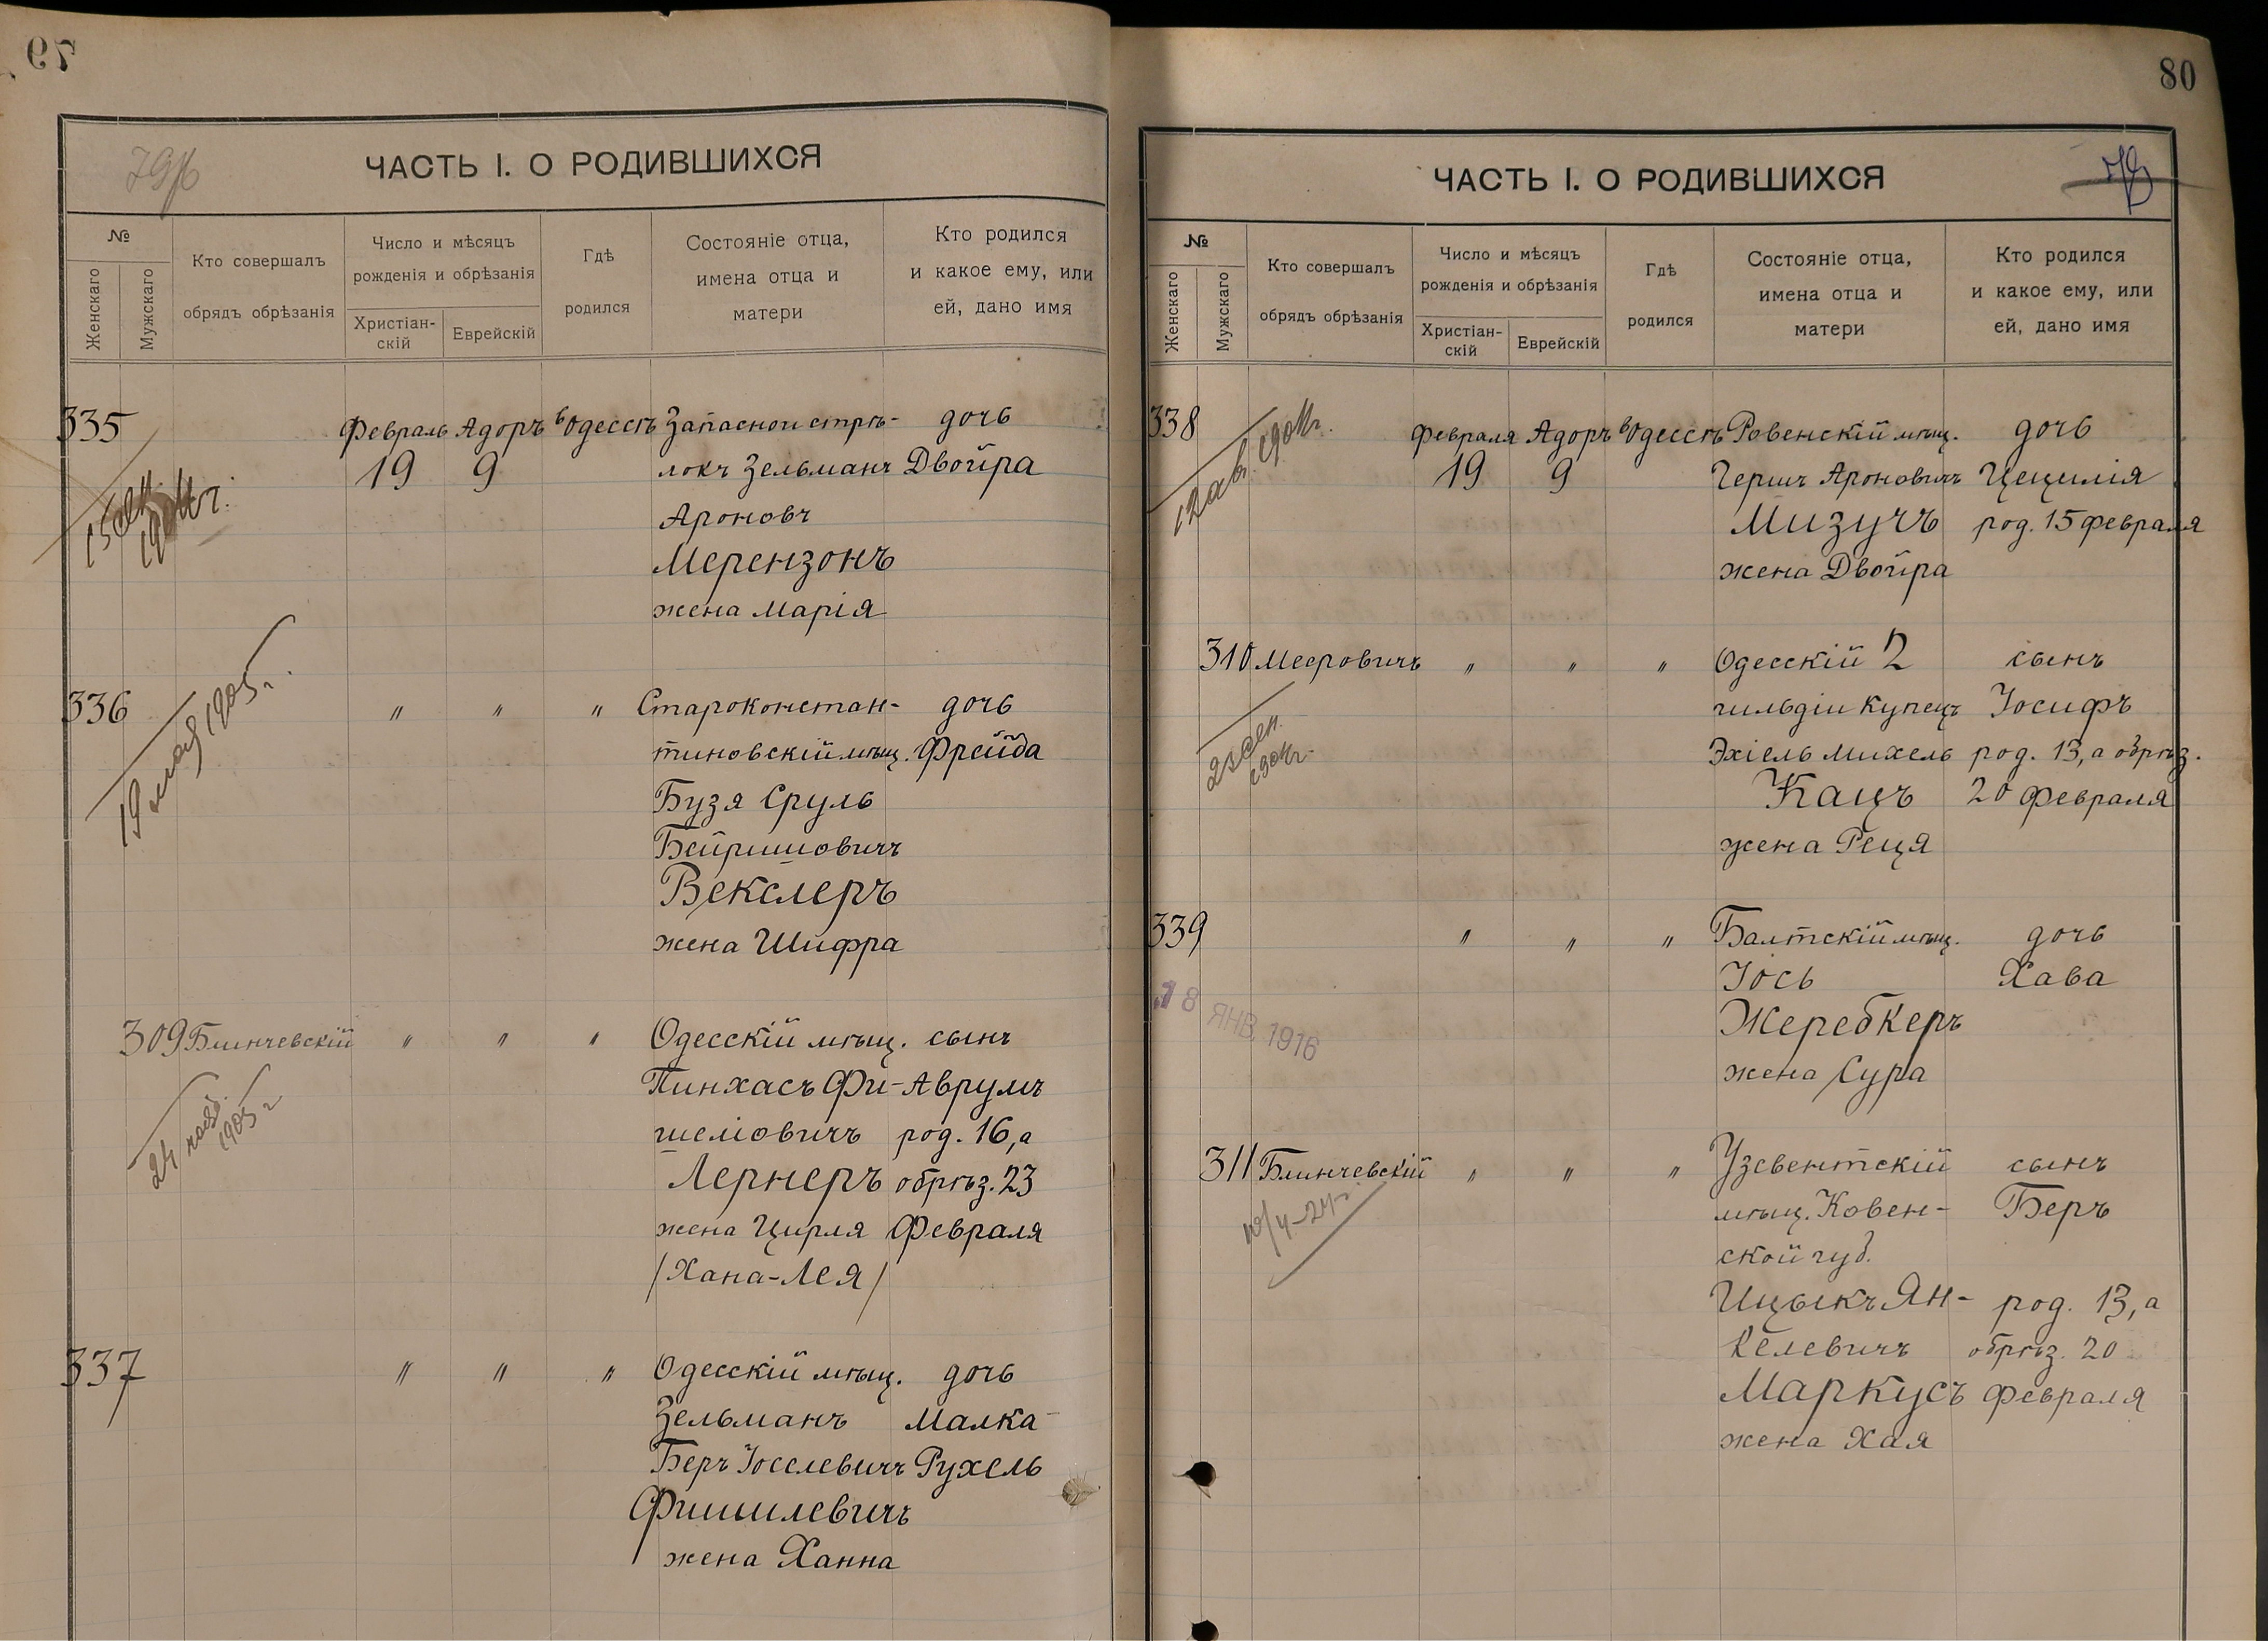 79
79 об
ЧАСТЬ I. О РОДИВШИХСЯ
№
Женскаго
Мужскаго
Кто совершалъ
обрядъ обрѣзанія
Число и мѣсяцъ
рожденія и обрѣзанія
Христіан-
скій
Еврейскій
Гдѣ
родился
Состояніе отца,
имена отца и
матери
Кто родился
и какое ему, или
ей, дано имя
335 Февраль Адоръ в Одессѣ Запасной стрѣ- дочь
19 9 локъ Зельманъ Двойра
Ароновъ
Мерензонъ
жена Марія
336 " " " Староконстан- дочь
19 мая 1905 г.
тиновскій мѣщ. Фрейда
Бузя Сруль
Бейришовичъ
Векслеръ
жена Шифра
309 Блинчевскій " " " Одесскій мѣщ. сынъ
Пинхасъ Фи- Аврумъ
24 нояб.
1905 г
шеліовичъ род. 16, а
Лернеръ обрѣз. 23
жена Цирля Февраля
/Хана-Лея/
337 " " " Одесскій мѣщ. дочь
Зельманъ Малка-
Беръ Іоселевичъ Рухель
Фишилевичъ
жена Ханна
80
ЧАСТЬ I. О РОДИВШИХСЯ
№
Женскаго
Мужскаго
Кто совершалъ
обрядъ обрѣзанія
Число и мѣсяцъ
рожденія и обрѣзанія
Христіан-
скій
Еврейскій
Гдѣ
родился
Состояніе отца,
имена отца и
матери
Кто родился
и какое ему, или
ей, дано имя
338 февраля Адоръ в Одессѣ Ровенскій мѣщ. дочь
19 9 Гершъ Ароновичъ Цецилія
Мизучъ род. 15 февраля
жена Двойра
310 Мееровичъ " " " Одесскій 2 сынъ
гильдіи купецъ Іосифъ
Эхіель Михель род. 13, а обрѣз.
Кацъ 20 февраля
жена Реця
339 " " " Балтскій мѣщ. дочь
Іось Хава
18 ЯНВ 1916
Жеребкеръ
жена Сура
311 Блинчевскій " " " Узвентскій сынъ
мѣщ. Ковен- Беръ
ской губ.
Ицыкъ Ян- род. 13, а
келевичъ обрѣз. 20
Маркусъ февраля
жена Хая